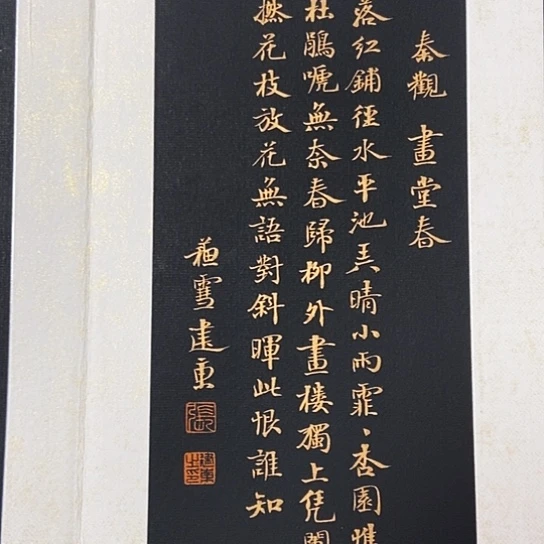 秦觀 畫堂春
落红鋪徑水平池弄晴小雨霏〻杏園憔
杜鵑嗁無奈春歸柳外畫楼獨上凭闌
撚花枝放花無語對斜暉此恨誰知
雪建
張